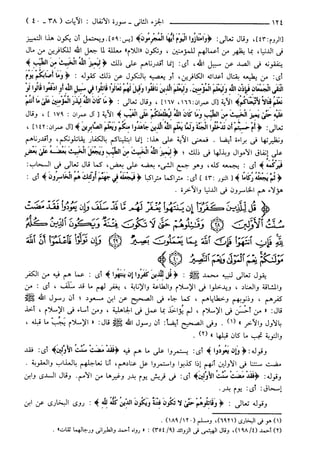 ١٢٤ ــــــــــ الجزء الثاني - سورة الأنفال : الآيات ( ٣٨ - ٤٠ )
[الروم:٤٣]، وقال تعالى: ﴿وَامْتَازُوا الْيَوْمَ أَيُّهَا الْمُجْرِمُونَ﴾ [يس:٥٩]. ويحتمل أن يكون هذا التمييز
في الدنيا، بما يظهر من أعمالهم للمؤمنين ، وتكون اللام معللة لما جعل الله للكافرين من مال
ينفقونه في الصد عن سبيل الله، أي: إنما أقدرناهم على ذلك ﴿لِيَمِيزَ اللَّهُ الْخَبِيثَ مِنَ الطَّيِّبِ﴾
أي: من يطيعه بقتال أعدائه الكافرين، أو يعصيه بالنكول عن ذلك كقوله : ﴿وَمَا أَصَابَكُمْ يَوْمَ
الْتَقَى الْجَمْعَانِ فَبِإِذْنِ اللَّهِ وَلِيَعْلَمَ الْمُؤْمِنِينَ. وَلِيَعْلَمَ الَّذِينَ نَافَقُوا وَقِيلَ لَهُمْ تَعَالَوْا قَاتِلُوا فِي سَبِيلِ اللَّهِ أَوِ ادْفَعُوا قَالُوا لَوْ
نَعْلَمُ قِتَالًا لَاتَّبَعْنَاكُمْ﴾ الآية [آل عمران:١٦٦، ١٦٧] ، وقال تعالى : ﴿مَا كَانَ اللَّهُ لِيَذَرَ الْمُؤْمِنِينَ عَلَى مَا أَنْتُمْ
عَلَيْهِ حَتَّى يَمِيزَ الْخَبِيثَ مِنَ الطَّيِّبِ وَمَا كَانَ اللَّهُ لِيُطْلِعَكُمْ عَلَى الْغَيْبِ﴾ الآية [آل عمران : ١٧٩] ، وقال
تعالى: ﴿أَمْ حَسِبْتُمْ أَنْ تَدْخُلُوا الْجَنَّةَ وَلَمَّا يَعْلَمِ اللَّهُ الَّذِينَ جَاهَدُوا مِنْكُمْ وَيَعْلَمَ الصَّابِرِينَ﴾ [آل عمران:١٤٢] ،
ونظيرتها في براءة أيضا . فمعنى الآية على هذا: إنما ابتليناكم بالكفار يقاتلونكم ، وأقدرناهم
على إنفاق الأموال وبذلها في ذلك : ﴿لِيَمِيزَ اللَّهُ الْخَبِيثَ مِنَ الطَّيِّبِ وَيَجْعَلَ الْخَبِيثَ بَعْضَهُ عَلَى بَعْضٍ
فَيَرْكُمَهُ﴾ أي: يجمعه كله، وهو جمع الشيء بعضه على بعض، كما قال تعالى في السحاب:
﴿ثُمَّ يَجْعَلُهُ رُكَامًا﴾ [النور : ٤٣] أي: متراكما متراكبا ﴿فَيَجْعَلَهُ فِي جَهَنَّمَ أُولَئِكَ هُمُ الْخَاسِرُونَ﴾ أي :
هؤلاء هم الخاسرون في الدنيا والآخرة .
قُلْ لِلَّذِينَ كَفَرُوا إِنْ يَنْتَهُوا يُغْفَرْ لَهُمْ مَا قَدْ سَلَفَ وَإِنْ يَعُودُوا فَقَدْ مَضَتْ
سُنَّتُ الْأَوَّلِينَ ۝ وَقَاتِلُوهُمْ حَتَّى لَا تَكُونَ فِتْنَةٌ وَيَكُونَ الدِّينُ كُلُّهُ لِلَّهِ فَإِنِ
انْتَهَوْا فَإِنَّ اللَّهَ بِمَا يَعْمَلُونَ بَصِيرٌ ۝ وَإِنْ تَوَلَّوْا فَاعْلَمُوا أَنَّ اللَّهَ
مَوْلَاكُمْ نِعْمَ الْمَوْلَى وَنِعْمَ النَّصِيرُ ۝
يقول تعالى لنبيه محمد ﷺ : ﴿قُلْ لِلَّذِينَ كَفَرُوا إِنْ يَنْتَهُوا﴾ أي : عما هم فيه من الكفر
والمشاقة والعناد ، ويدخلوا في الإسلام والطاعة والإنابة ، يغفر لهم ما قد سلف ، أي : من
كفرهم ، وذنوبهم وخطاياهم ، كما جاء في الصحيح عن ابن مسعود ؛ أن رسول الله ﷺ
قال: « من أحْسَن في الإسلام ، لم يُؤاخَذ بما عمل في الجاهلية ، ومن أساء في الإسلام ، أُخذ
بالأول والآخر » (١) . وفي الصحيح أيضاً: أن رسول الله ﷺ قال: « الإسلام يَجُبّ ما قبله ،
والتوبة تجب ما كان قبلها » (٢) .
وقوله: ﴿وَإِنْ يَعُودُوا﴾ أي: يستمروا على ما هم فيه ﴿فَقَدْ مَضَتْ سُنَّتُ الْأَوَّلِينَ﴾ أي: فقد
مضت سنتنا في الأولين أنهم إذا كذبوا واستمروا على عنادهم، أنا نعاجلهم بالعذاب والعقوبة .
وقوله: ﴿فَقَدْ مَضَتْ سُنَّتُ الْأَوَّلِينَ﴾ أي: في قريش يوم بدر وغيرها من الأمم. وقال السدي وابن
إسحاق: أي: يوم بدر.
وقوله تعالى : ﴿وَقَاتِلُوهُمْ حَتَّى لَا تَكُونَ فِتْنَةٌ وَيَكُونَ الدِّينُ كُلُّهُ لِلَّهِ﴾ : روى البخاري عن ابن
(١) هو في البخاري (٦٩٢١)، ومسلم (١٢٠/ ١٨٩).
(٢) أحمد (٤/ ١٩٨)، وقال الهيثمي في الزوائد (٩/ ٣٥٤): « رواه أحمد والطبراني ورجالهما ثقات» .